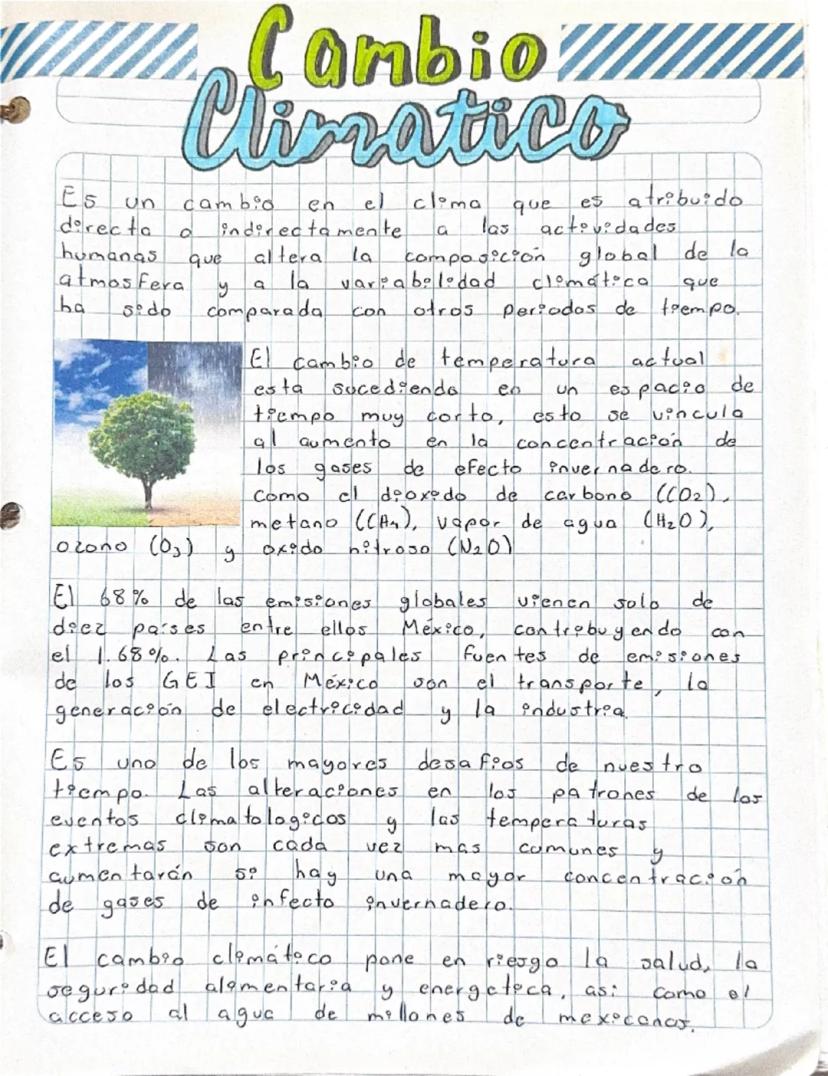 Cambio
Climatico
Es un cambio en el clima que es atribuido
directa o indirectamente a las actividades
humanas que altera la composición global de la
atmosfera y a la variabilidad climática que
ha sido comparada con otros periodos de tiempo.
El cambio de temperatura actual
esta sucediendo en un espacio de
tiempo muy corto, esto se vincula
al aumento en la concentración de
los gases de efecto invernadero.
como el dioxido de carbono ((CO2),
metano ((CH4), vapor de agua (H2O),
ozono (O3) y oxido nitroso (N2O)
El 68% de las emisiones globales vienen solo de
diez países entre ellos México, contribuyendo con
el 1.68%. Las principales fuentes de emisiones
de los GEI en México son el transporte, la
generación de electricidad y la industria.
Es uno de los mayores desafios de nuestro
tiempo. Las alteraciones en los patrones de los
eventos climatologicos y las temperaturas
extremas son cada vez mas comunes y
aumentarán si hay una mayor concentración
de gases de infecto invernadero.
El cambio climático pone en riesgo la salud, la
seguridad alimentaria y energetica, asi como el
acceso al agua de millones de mexicanos.